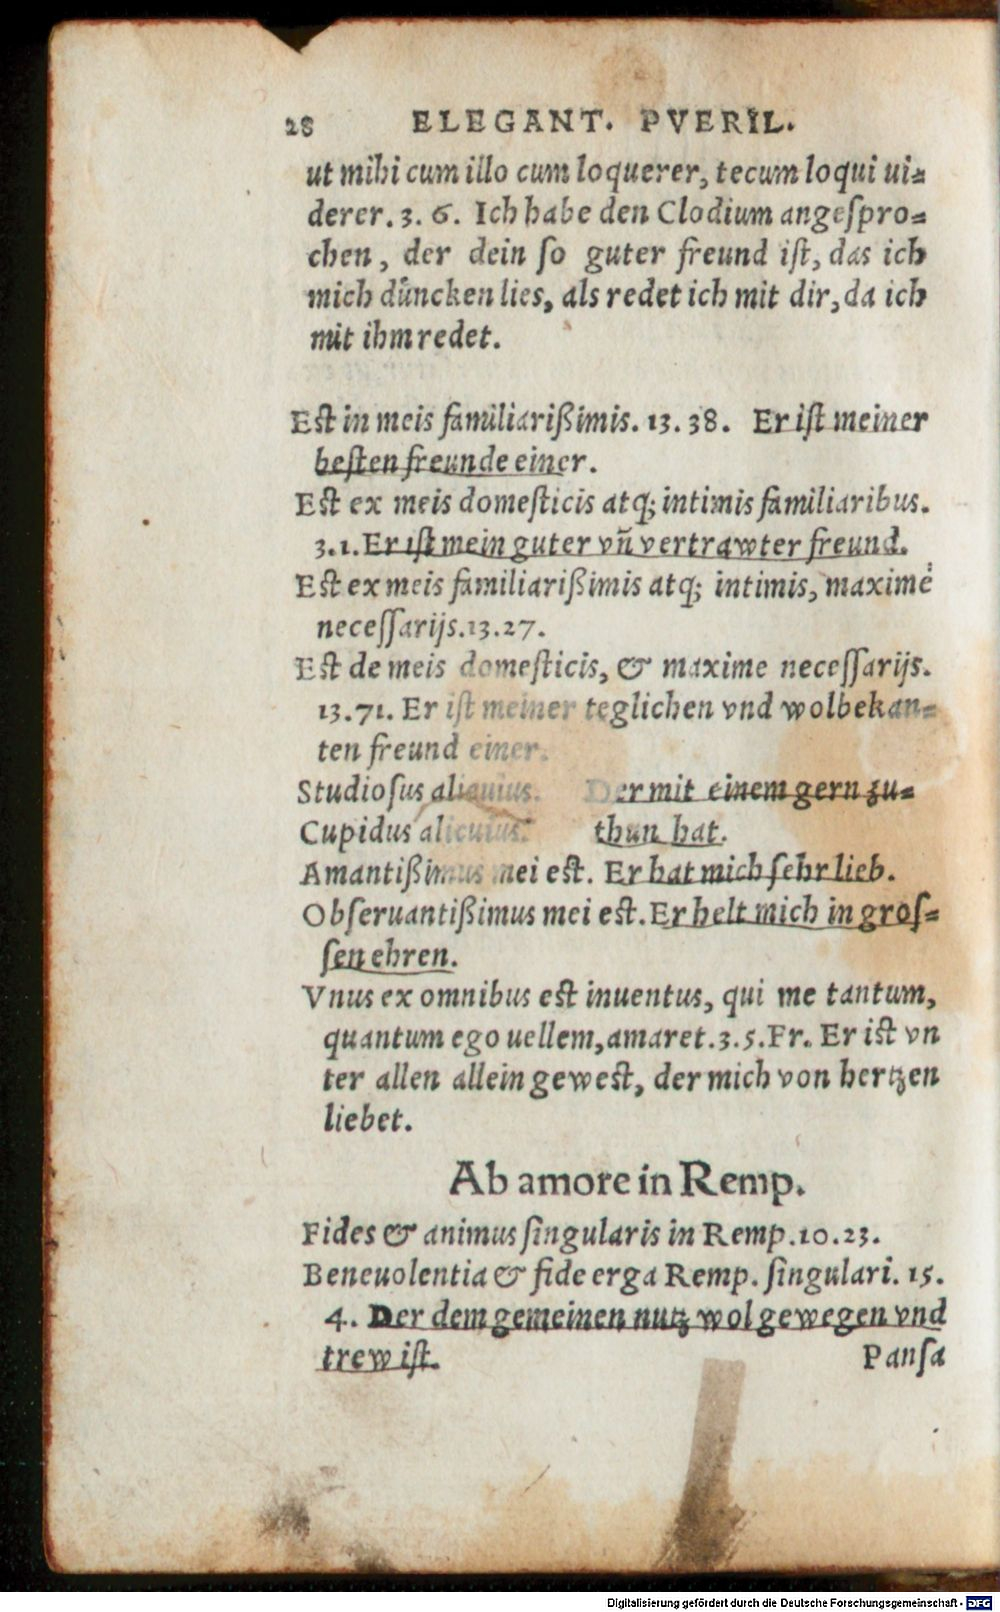 28 ELEGANT. PVERIL.
ut mihi cum illo cum loquerer, tecum loqui ui⸗
derer. 3. 6. Ich habe den Clodium angeſpro⸗
chen, der dein ſo guter freund iſt, das ich
mich duͤncken lies, als redet ich mit dir, da ich
mit ihm redet.
Est in meis familiarißimis. 13. 38. Er iſt meiner
beſten freunde einer.
Est ex meis domeſticis atq; intimis familiaribus.
3. 1. Er iſt mein guter vñ vertrawter freund.
Est ex meis familiarißimis atq; intimis, maximè
neceſſarijs. 13. 27.
Est de meis domeſticis, & maxime neceſſarijs.
13. 71. Er iſt meiner teglichen vnd wolbekan⸗
ten freund einer.
Studioſus alicuius. Der mit einem gern zu⸗
Cupidus alicuius. thun hat.
Amantißimus mei est. Er hat mich ſehr lieb.
Obſeruantißimus mei est. Er helt mich in groſ⸗
ſen ehren.
Vnus ex omnibus est inuentus, qui me tantum,
quantum ego uellem, amaret. 3. 5. Fr. Er ist vn
ter allen allein gewest, der mich von hertzen
liebet.
Ab amore in Remp.
Fides & animus ſingularis in Remp. 10. 23.
Beneuolentia & fide erga Remp. ſingulari. 15.
4. Der dem gemeinen nutz wol gewegen vnd
trew iſt. Panſa
Digitalisierung gefördert durch die Deutsche Forschungsgemeinschaft - DFG